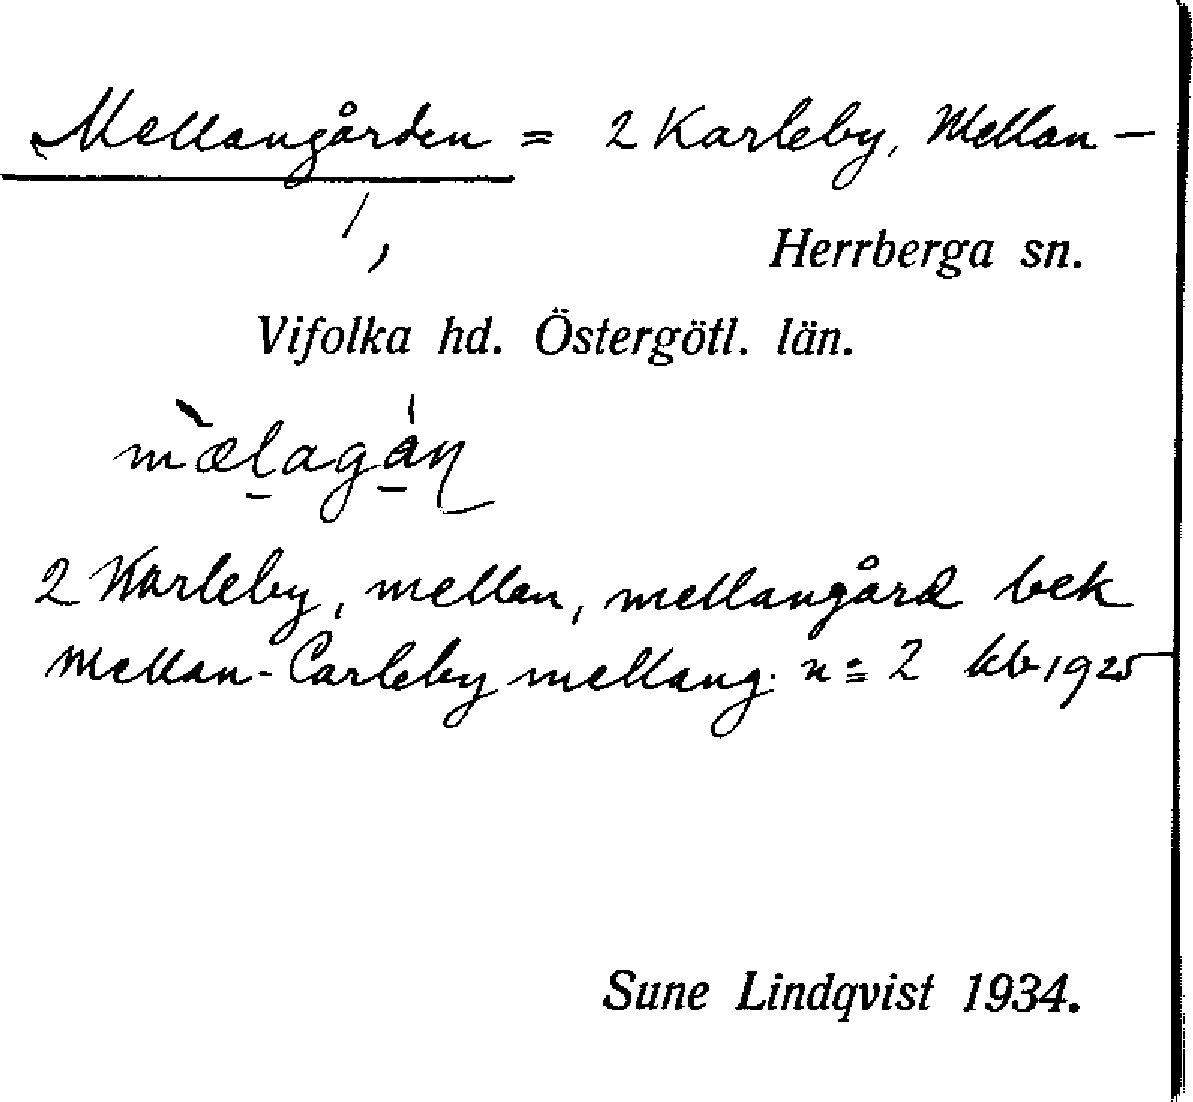 Mellangården = 2 Karleby, Mellan-
Herrberga sn.
Vifolka hd. Östergötl. län.
mæ̀lagån
2 Karleby, mellan, mellangård bek
Mellan-Carleby mellang. n:= 2 kb 1925
Sune Lindqvist 1934.